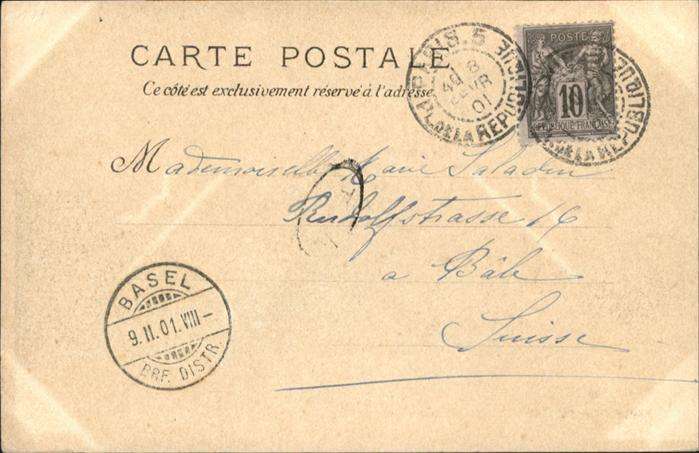 CARTE POSTALE
Ce côté est exclusivement réservé à l'adresse
PARIS. 5
8
FEVR
01
PL. DE LA REPUBLIQUE
POSTE
10
REPUBLIQUE FRANCAISE
PL. DE LA REPUBLIQUE
Mademoiselle Marie Saladin
Rudolfstrasse 16
a Bâle
Suisse
BASEL
9.II.01.VIII-
BRF. DISTR.